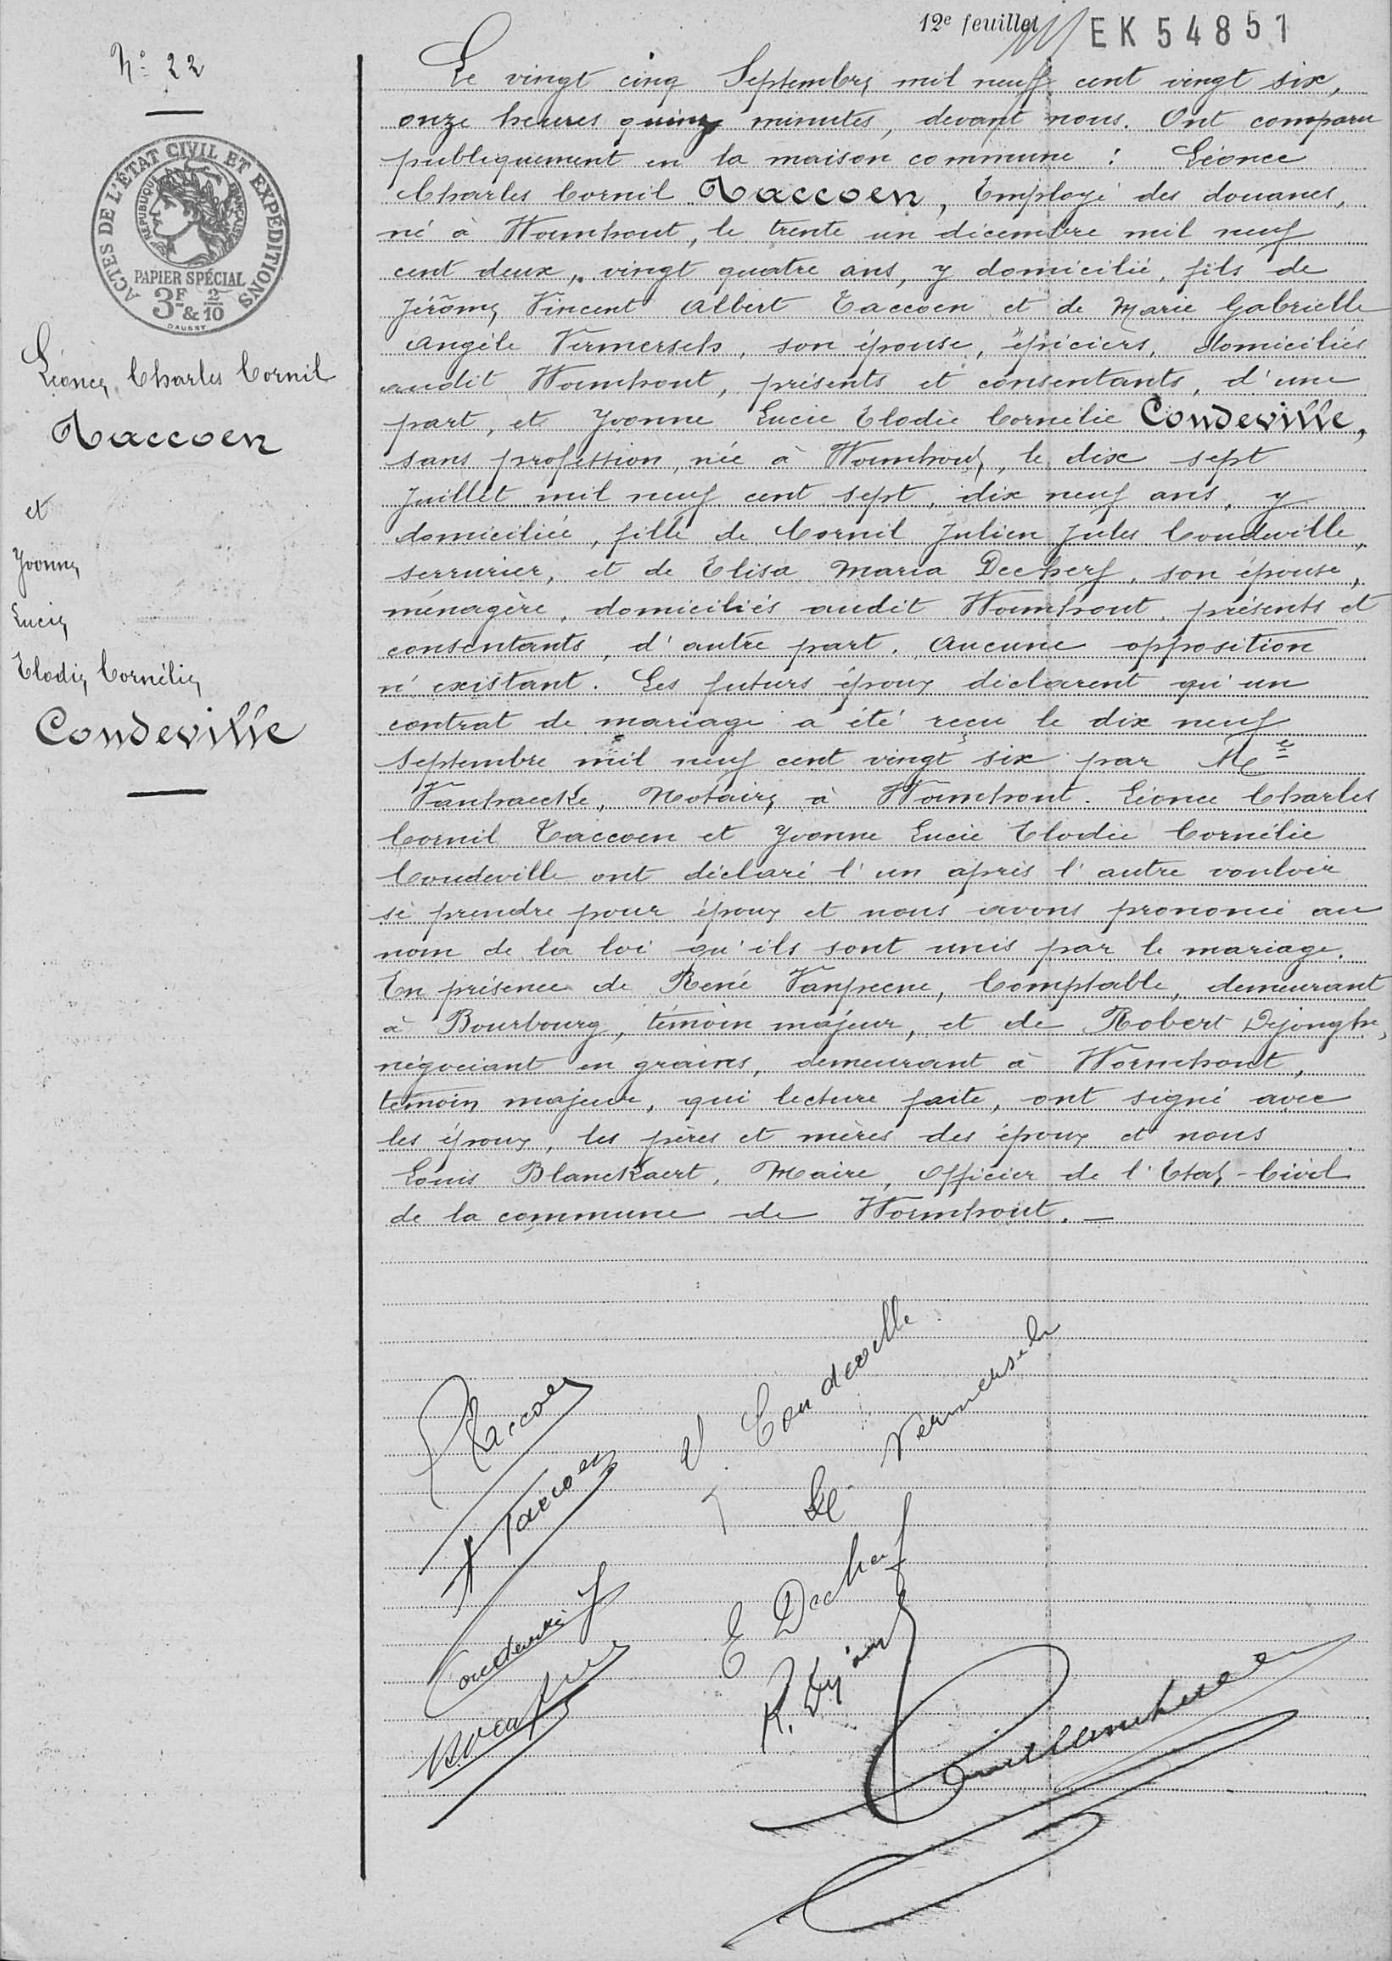 12e feuillet EK54851
N° 22
ACTES DE L'ÉTAT CIVIL ET EXPÉDITIONS
RÉPUBLIQUE FRANÇAISE
PAPIER SPÉCIAL
3F & 2/10
DAUSSY
Léonce Charles Cornil
Taccoen
et
Yvonne
Lucie
Elodie Cornélie
Coudeville
Le vingt cinq Septembre mil neuf cent vingt six,
onze heures quinze minutes, devant nous. Ont comparu
publiquement en la maison commune : Léonce
Charles Cornil Taccoen, Employé des douanes,
né à Wormhout, le trente un décembre mil neuf
cent deux, vingt quatre ans, y domicilié, fils de
Jérôme Vincent Albert Taccoen et de Marie Gabrielle
Angèle Vermersch, son épouse, épiciers, domiciliés
audit Wormhout, présents et consentants, d'une
part, et Yvonne Lucie Elodie Cornélie Coudeville,
sans profession, née à Wormhout, le dix sept
Juillet mil neuf cent sept, dix neuf ans, y
domiciliée, fille de Cornil Julien Jules Coudeville,
serrurier, et de Elisa Maria Decherf, son épouse,
ménagère, domiciliés audit Wormhout, présents et
consentants, d'autre part. Aucune opposition
n'existant. Les futurs époux déclarent qu'un
contrat de mariage a été reçu le dix neuf
Septembre mil neuf cent vingt six par Me
Vanhaecke, Notaire à Wormhout. Léonce Charles
Cornil Taccoen et Yvonne Lucie Elodie Cornélie
Coudeville ont déclaré l'un après l'autre vouloir
se prendre pour époux et nous avons prononcé au
nom de la loi qu'ils sont unis par le mariage.
En présence de René Comptable, demeurant
à Bourbourg, témoin majeur, et de Robert Dejonghe,
négociant en graines, demeurant à Wormhout,
témoin majeur, qui lecture faite, ont signé avec
les époux, les pères et mères des époux et nous
Louis Blanckaert, Maire, Officier de l'Etat-Civil
de la commune de Wormhout. —
Taccoen
Y Coudeville
Taccoen
Vermersch
Coudeville J
E Decherf
R. Dejongh